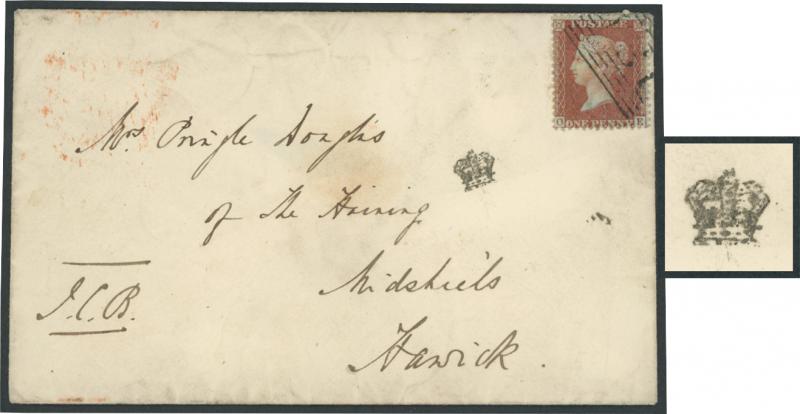 POSTAGE
ONE PENNY
Mrs Pringle Douglas
of The Haining
Midshiels
Hawick.
J.C.B.